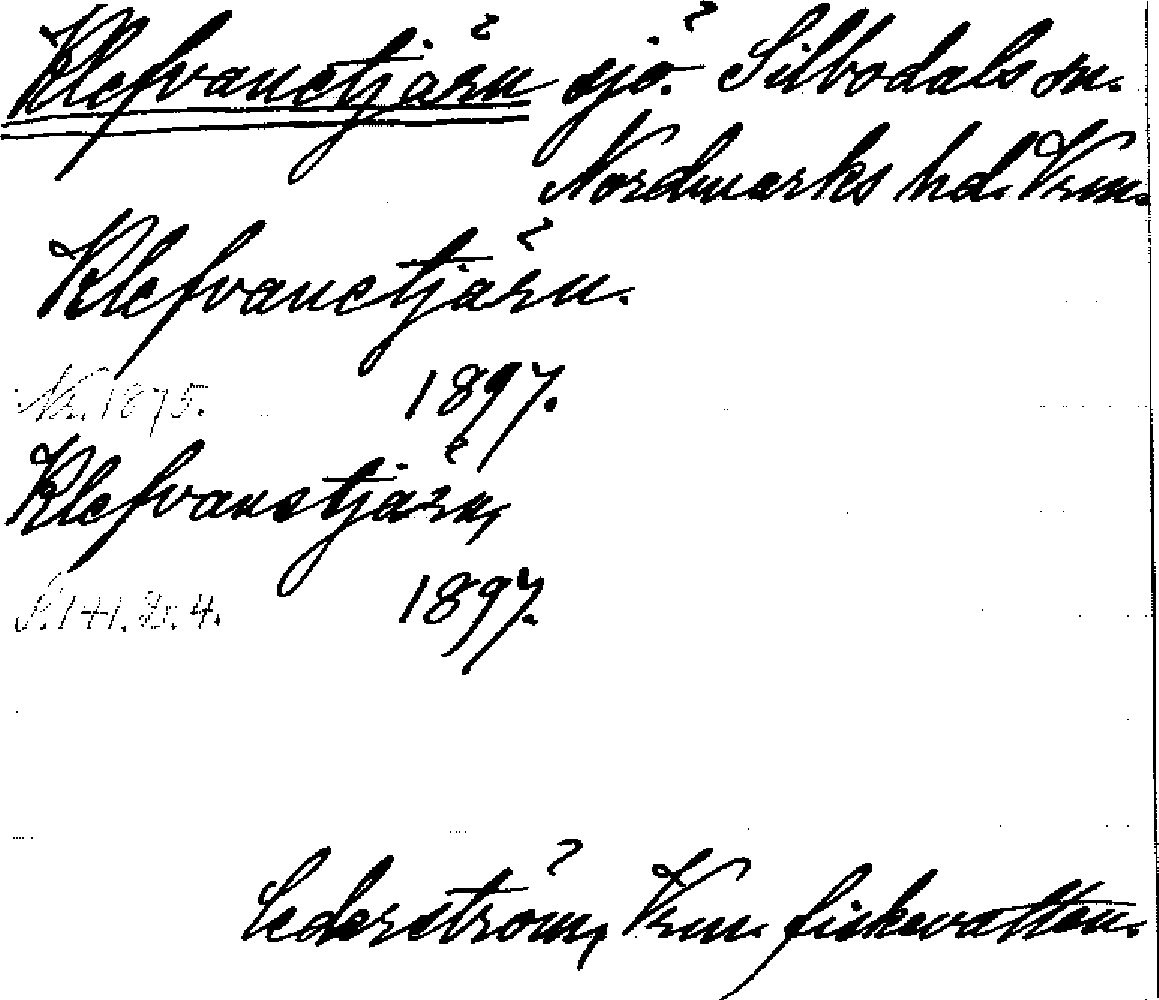 Klefvanetjärn sjö. Silbodals sn.
Nordmarks hd. Vrm.
Klefvanetjärn.
Nr. 1875. 1897.
Klefvanstjärn,
S. 141. Dr. 4. 1897.
Cederström, Vrm. fiskevatten.